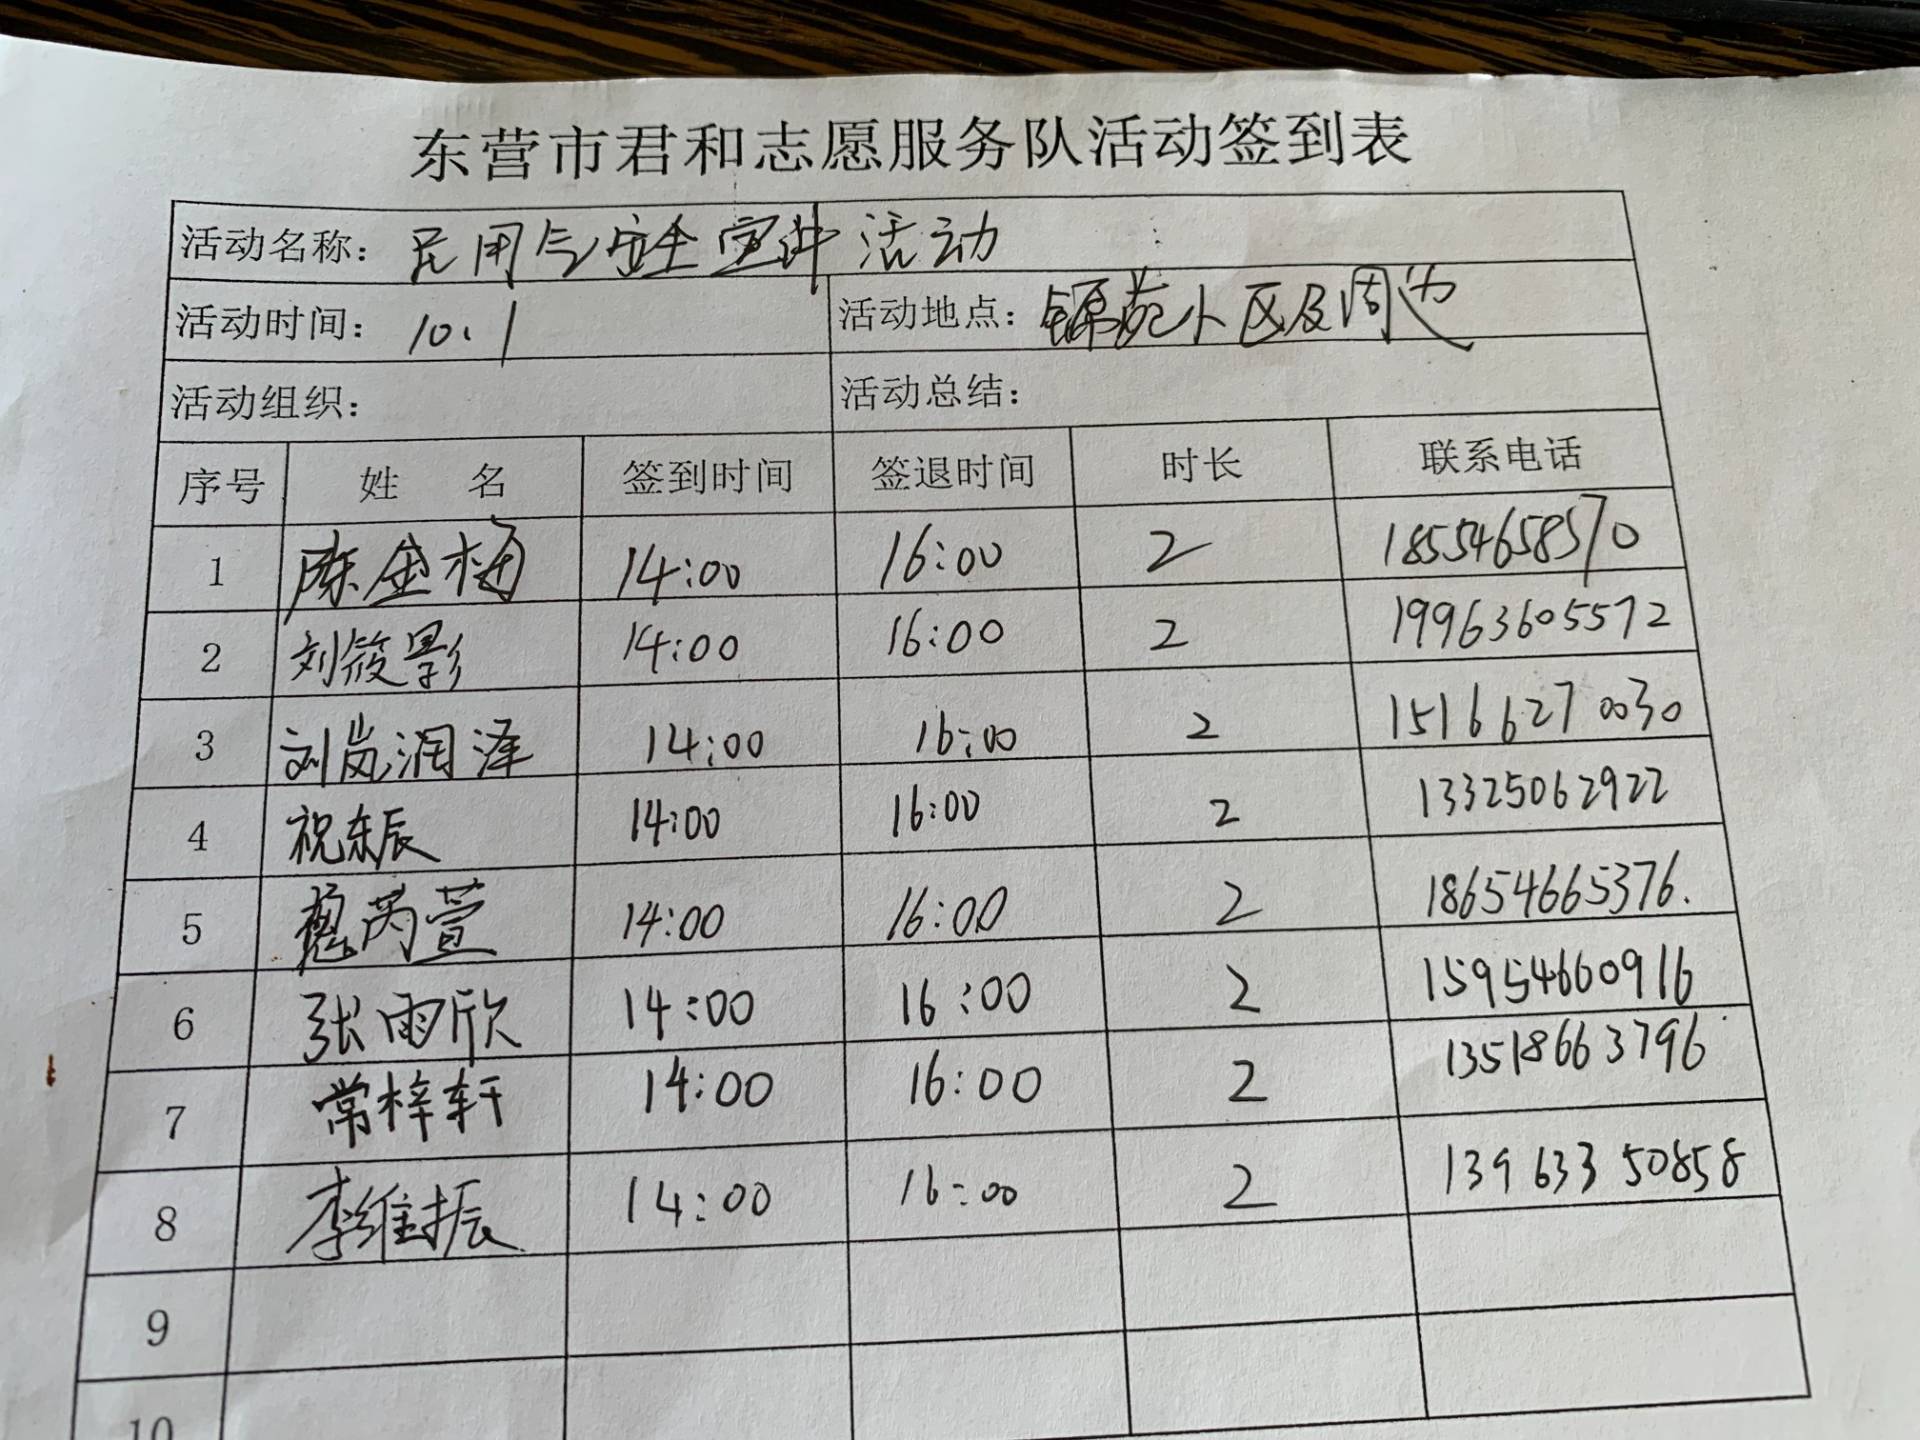 东营市君和志愿服务队活动签到表
活动名称：民用气安全宣讲活动
活动时间：10.1 活动地点：锦苑小区及周边
活动组织： 活动总结：
序号 姓 名 签到时间 签退时间 时长 联系电话
1 陈金梅 14:00 16:00 2 18554658570
2 刘筱影 14:00 16:00 2 19963605572
3 刘岚润泽 14:00 16:00 2 15166270030
4 祝东辰 14:00 16:00 2 13325062922
5 芮萱 14:00 16:00 2 18654665376.
6 张雨欣 14:00 16:00 2 15954660916
7 常梓轩 14:00 16:00 2 13518663796
8 李维振 14:00 16:00 2 13963350858
9
10